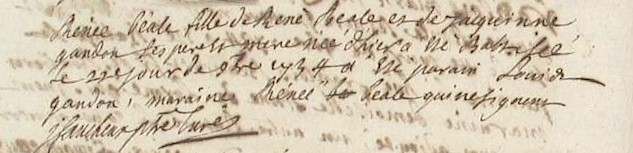 Renée Béale fille de René Beale et de jacquinne
gandon ses pere et mere née d'hier a été Batisée
le 22e jour de 9bre 1734 a été parain Louis
gandon, maraine Renée Beale qui ne signent
ptre curé